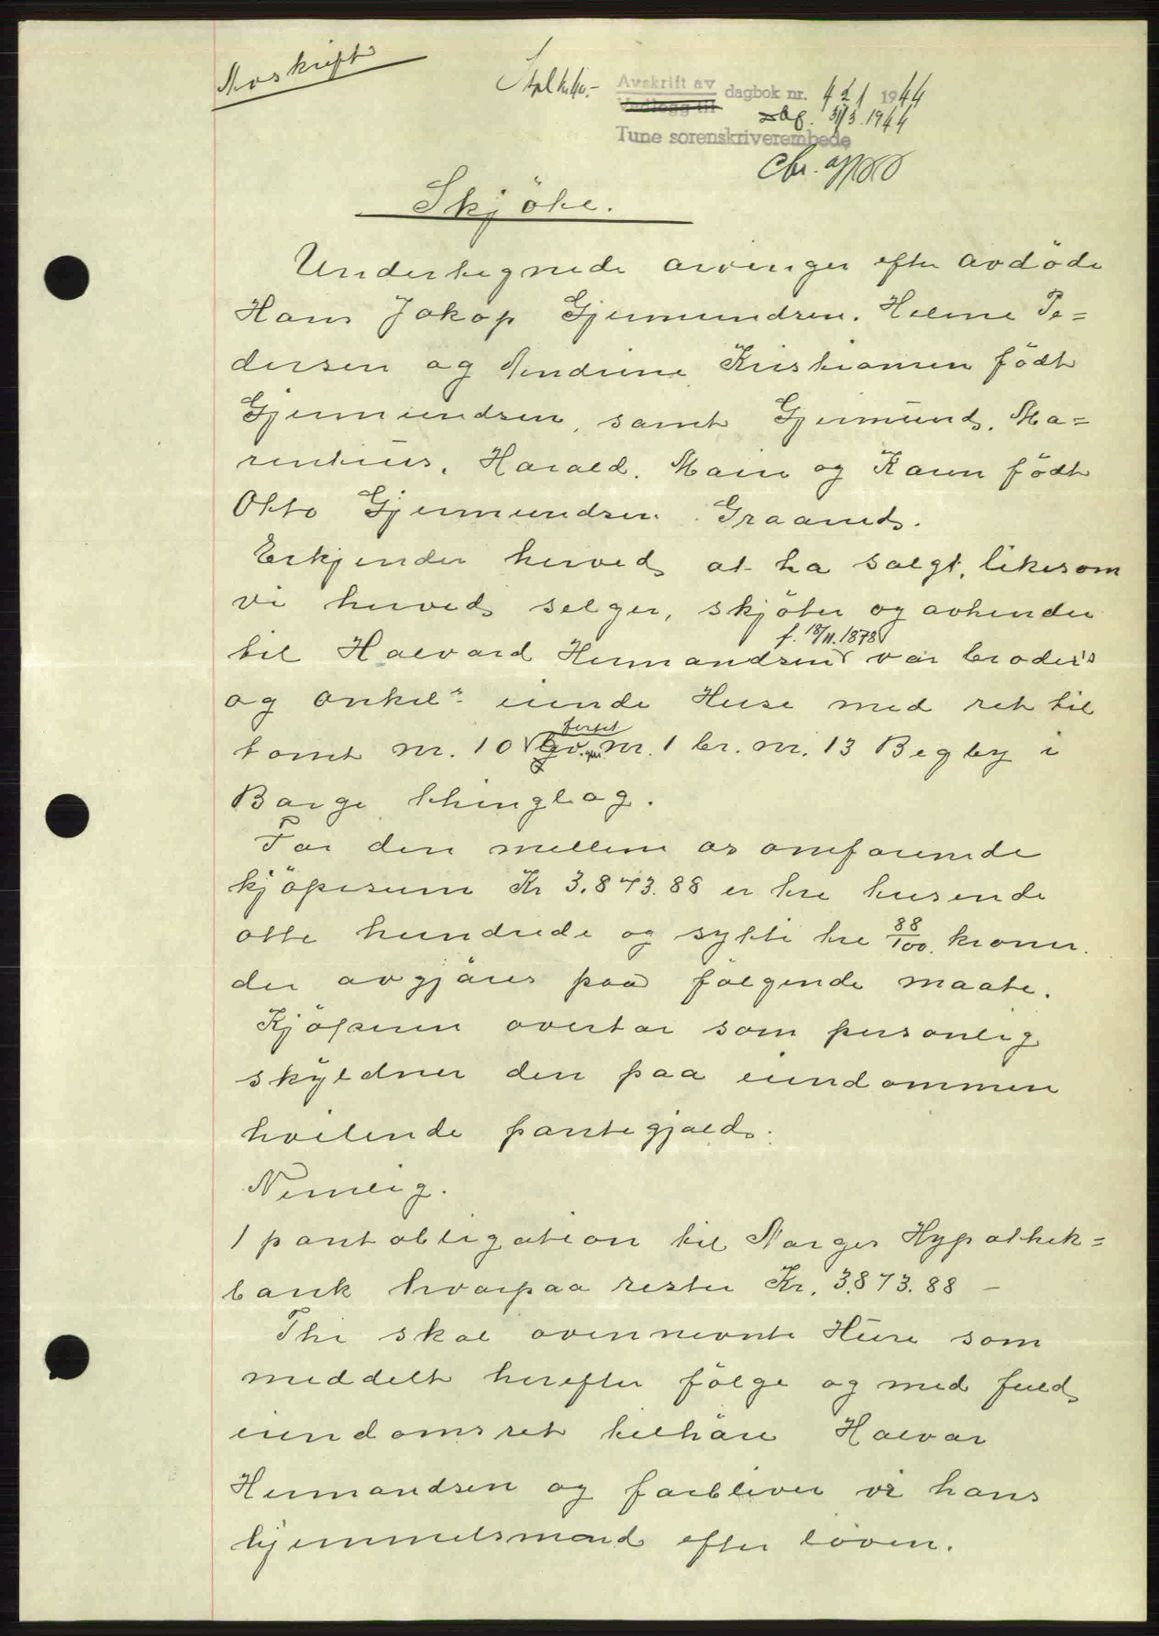 Avskrift
Avskrift av
Vedlegg til
dagbok nr. 421 1944
31/3. 1944
Tune sorenskriverembede
Skjöte.
Undertegnede arvinger efter avdöde
Hans Jakop Gjermundsen. Helene Pe=
dersen og Andrine Kristiansen födt
Gjermundsen, samt Gjermund. Ma=
rentius. Harald. Marie og Karen födt
Otto Gjermundsen Graarud.
Erkjender herved at ha solgt, likesom
vi herved selger, skjöter og avhender
f. 18/11. 1878
til Halvard Hermandsen vor broder's
og onkel's eiende Huse med ret til
festet
tomt nr. 10 av gr. nr. 1 br. nr. 13 Begby i
Borge thinglag.
For den mellem os omforenede
kjöpesum Kr 3.873.88 er tre tusende
otte hundrede og sytti tre 88/100 kroner.
der avgjöres paa fölgende maate.
Kjöperen overtar som personlig
skyldner den paa eiendommen
hvilende pantegjæld.
Nemlig.
1 pantobligation til Norges Hypothek=
bank hvorpaa rester Kr. 3873.88 –
Thi skal ovennevnte Huse som
meddelt herefter fölge og med fuld
eiendomsret tilhöre Halvar
Hermandsen og forbliver vi hans
hjemmelsmænd efter loven.